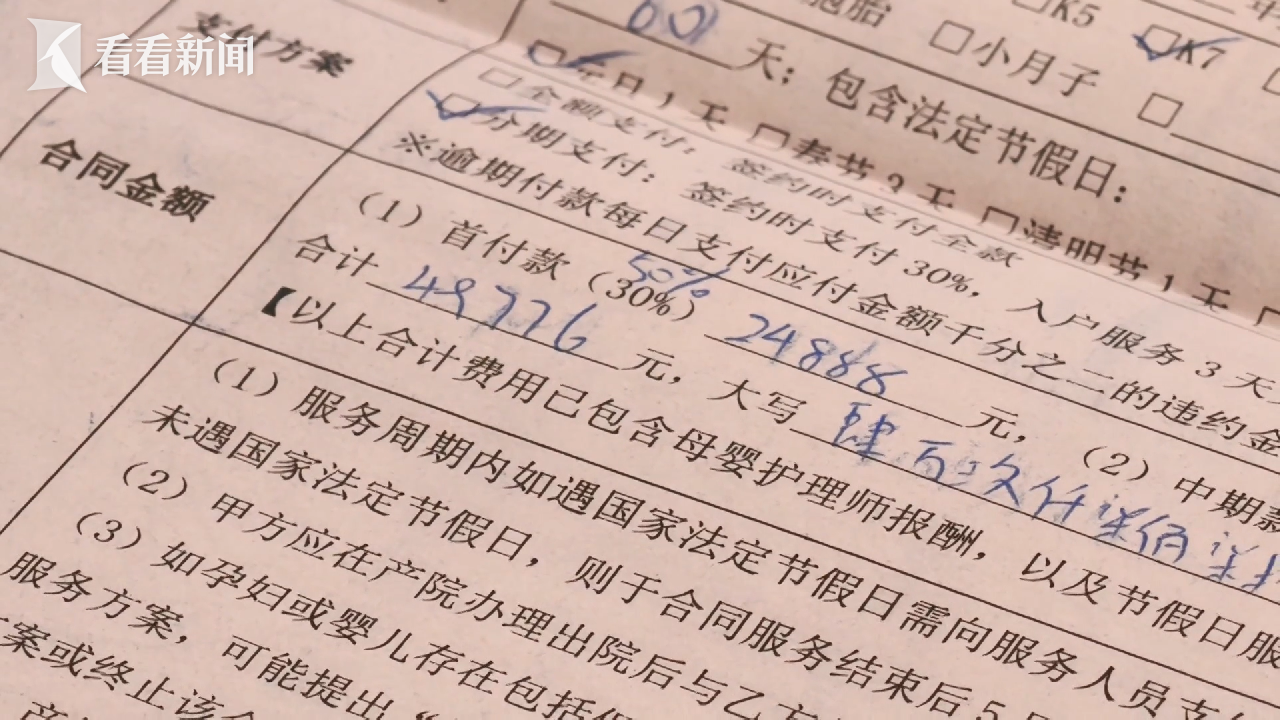 看看新闻
胞胎 □小月子 □
□K5 □K7
60 天；包含法定节假日：
□元旦1天 □春节3天 □清明节1天
支付方案
□全额支付：签约时支付全款
□分期支付：签约时支付30%，入户服务3天
※逾期付款每日支付应付金额千分之二的违约金
合同金额
（1）首付款（30%）50% 24888 元，（2）中期款
合计 49776 元，大写 肆万玖仟柒佰柒拾
【以上合计费用已包含母婴护理师报酬，以及节假日服
（1）服务周期内如遇国家法定节假日需向服务人员支付
未遇国家法定节假日，则于合同服务结束后5
（2）甲方应在产院办理出院后与乙方
（3）如孕妇或婴儿存在包括但
服务方案，可能提出“
案或终止该合